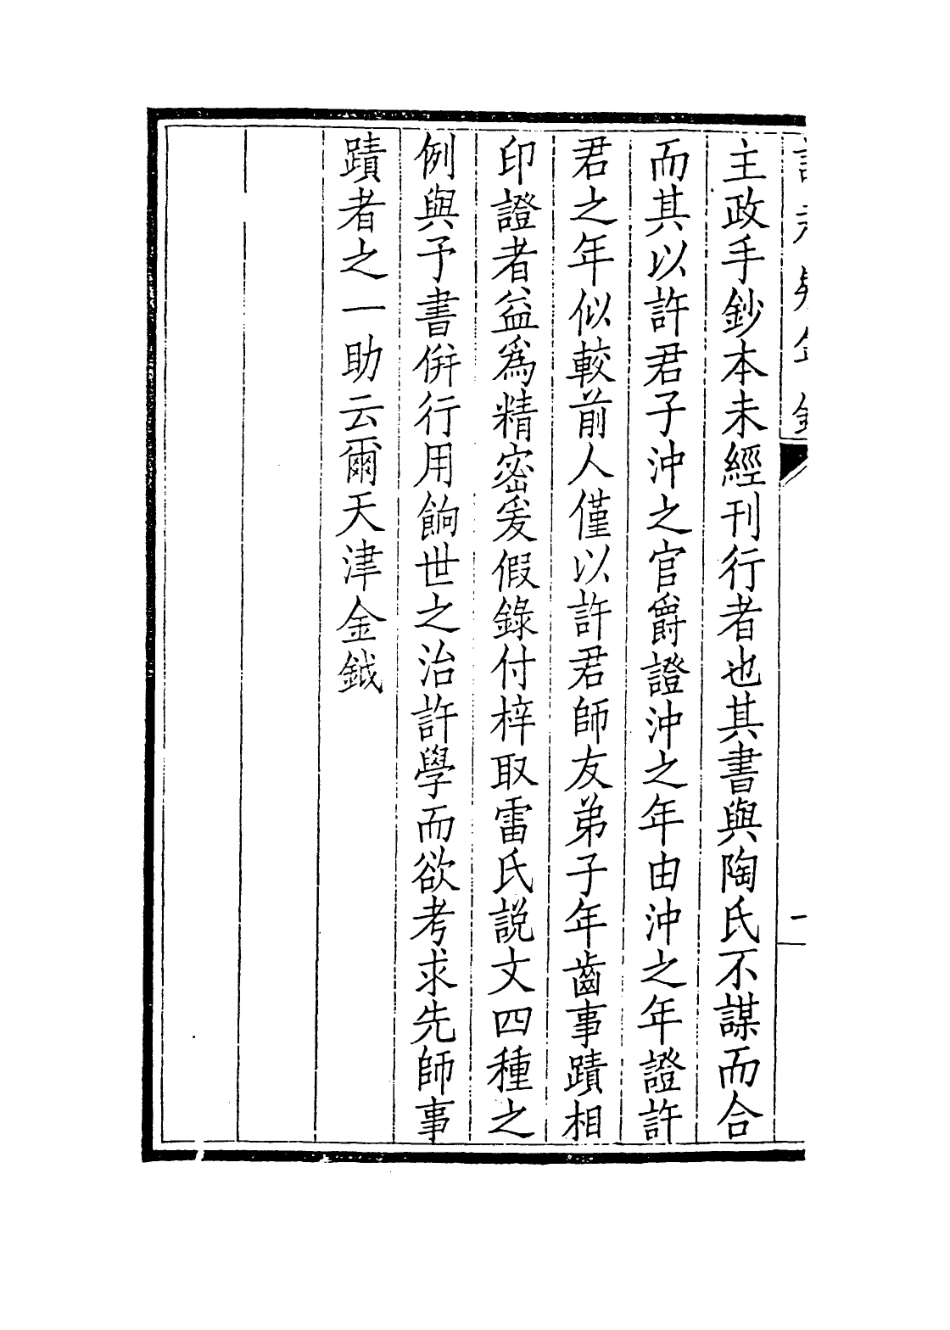 主政手鈔本未經刊行者也其書與陶氏不謀而合
而其以許君子沖之官爵證沖之年由沖之年證許
君之年似較前人僅以許君師友弟子年齒事蹟相
印證者益爲精密爰假錄付梓取雷氏説文四種之
例與予書倂行用餉世之治許學而欲考求先師事
蹟者之一助云爾天津金鉞
一